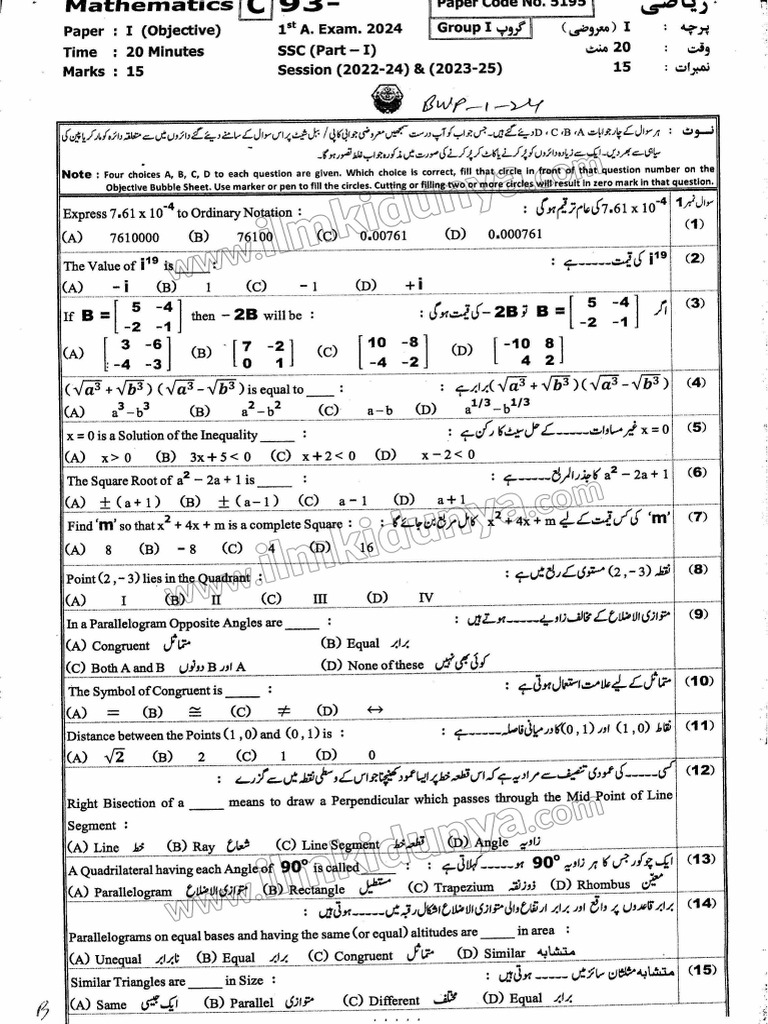 Mathematics C 93- Paper Code No. 5195 ریاضی
Paper : I (Objective) 1st A. Exam. 2024 Group I گروپ پرچہ : I (معروضی)
Time : 20 Minutes SSC (Part – I) وقت : 20 منٹ
Marks : 15 Session (2022-24) & (2023-25) نمبرات : 15
BWP-1-24
نوٹ : ہر سوال کے چار جوابات D ، C ، B ، A دیئے گئے ہیں۔ جس جواب کو آپ درست سمجھیں معروضی جوابی کاپی / ببل شیٹ پر اس سوال کے سامنے دیئے گئے دائروں میں سے متعلقہ دائرہ کو مارکر یا پین کی
سیاہی سے بھر دیں۔ ایک سے زیادہ دائروں کو پُر کرنے یا کاٹ کر پُر کرنے کی صورت میں مذکورہ جواب غلط تصور ہو گا۔
Note : Four choices A, B, C, D to each question are given. Which choice is correct, fill that circle in front of that question number on the
Objective Bubble Sheet. Use marker or pen to fill the circles. Cutting or filling two or more circles will result in zero mark in that question.
سوال نمبر 1
Express 7.61 x 10⁻⁴ to Ordinary Notation : 7.61 x 10⁻⁴ کی عام ترقیم ہو گی : (1)
(A) 7610000 (B) 76100 (C) 0.00761 (D) 0.000761
The Value of i¹⁹ is _____ : i¹⁹ کی قیمت ----- ہے : (2)
(A) – i (B) 1 (C) – 1 (D) +i
If B = [5 –4; –2 –1] then – 2B will be : اگر B = [5 –4; –2 –1] تو – 2B کی قیمت ہو گی : (3)
(A) [3 –6; –4 –3] (B) [7 –2; 0 1] (C) [10 –8; –4 –2] (D) [–10 8; 4 2]
(√a³ + √b³) (√a³ – √b³) is equal to ____ : (√a³ + √b³) (√a³ – √b³) برابر ہے : (4)
(A) a³ – b³ (B) a² – b² (C) a – b (D) a^1/3 – b^1/3
x = 0 is a Solution of the Inequality _____ : x = 0 غیر مساوات ----- کے حل سیٹ کا رکن ہے : (5)
(A) x > 0 (B) 3x + 5 < 0 (C) x + 2 < 0 (D) x – 2 < 0
The Square Root of a² – 2a + 1 is _____ : a² – 2a + 1 کا جذر المربع ----- ہے : (6)
(A) ± (a + 1) (B) ± (a – 1) (C) a – 1 (D) a + 1
Find 'm' so that x² + 4x + m is a complete Square : 'm' کی کس قیمت کے لیے x² + 4x + m کامل مربع بن جائے گا : (7)
(A) 8 (B) – 8 (C) 4 (D) 16
Point (2, – 3) lies in the Quadrant : نقطہ (2, – 3) مستوی کے ربع میں ہے : (8)
(A) I (B) II (C) III (D) IV
In a Parallelogram Opposite Angles are _____ : متوازی الاضلاع کے مخالف زاویے ----- ہوتے ہیں : (9)
(A) Congruent متماثل (B) Equal برابر
(C) Both A and B A اور B دونوں (D) None of these کوئی بھی نہیں
The Symbol of Congruent is _____ : متماثل کے لیے علامت استعمال ہوتی ہے : (10)
(A) = (B) ≅ (C) ≠ (D) ↔
Distance between the Points (1, 0) and (0, 1) is : نقاط (1, 0) اور (0, 1) کا درمیانی فاصلہ ----- ہے : (11)
(A) √2 (B) 2 (C) 1 (D) 0
کسی ----- کی عمودی تنصیف سے مراد یہ ہے کہ اس قطعہ خط پر ایسا عمود کھینچنا جو اس کے وسطی نقطہ میں سے گزرے : (12)
Right Bisection of a _____ means to draw a Perpendicular which passes through the Mid Point of Line
Segment :
(A) Line خط (B) Ray شعاع (C) Line Segment قطعہ خط (D) Angle زاویہ
A Quadrilateral having each Angle of 90° is called _____ : ایک چوکور جس کا ہر زاویہ 90° ہو ----- کہلاتی ہے : (13)
(A) Parallelogram متوازی الاضلاع (B) Rectangle مستطیل (C) Trapezium ذوزنقہ (D) Rhombus معین
برابر قاعدوں پر واقع اور برابر ارتفاع والی متوازی الاضلاع اشکال رقبہ میں ----- ہوتی ہیں : (14)
Parallelograms on equal bases and having the same (or equal) altitudes are _____ in area :
(A) Unequal نابرابر (B) Equal برابر (C) Congruent متماثل (D) Similar متشابہ
Similar Triangles are _____ in Size : متشابہ مثلثان سائز میں ----- ہوتی ہیں : (15)
(A) Same ایک جیسی (B) Parallel متوازی (C) Different مختلف (D) Equal برابر
B
www.ilmkidunya.com
www.ilmkidunya.com
www.ilmkidunya.com